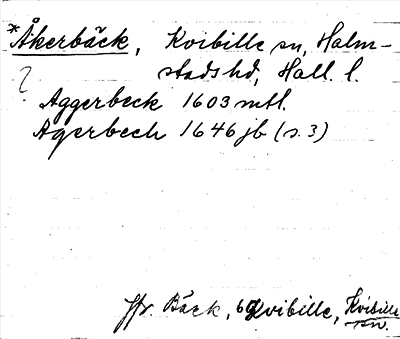 *Åkerbäck, Kvibille sn, Halm-
stads hd, Hall. l.
? Aggerbeck 1603 mtl.
Agerbech 1646 jb (s. 3)
Jfr Bäck, Kvibille, Kvibille
sn.